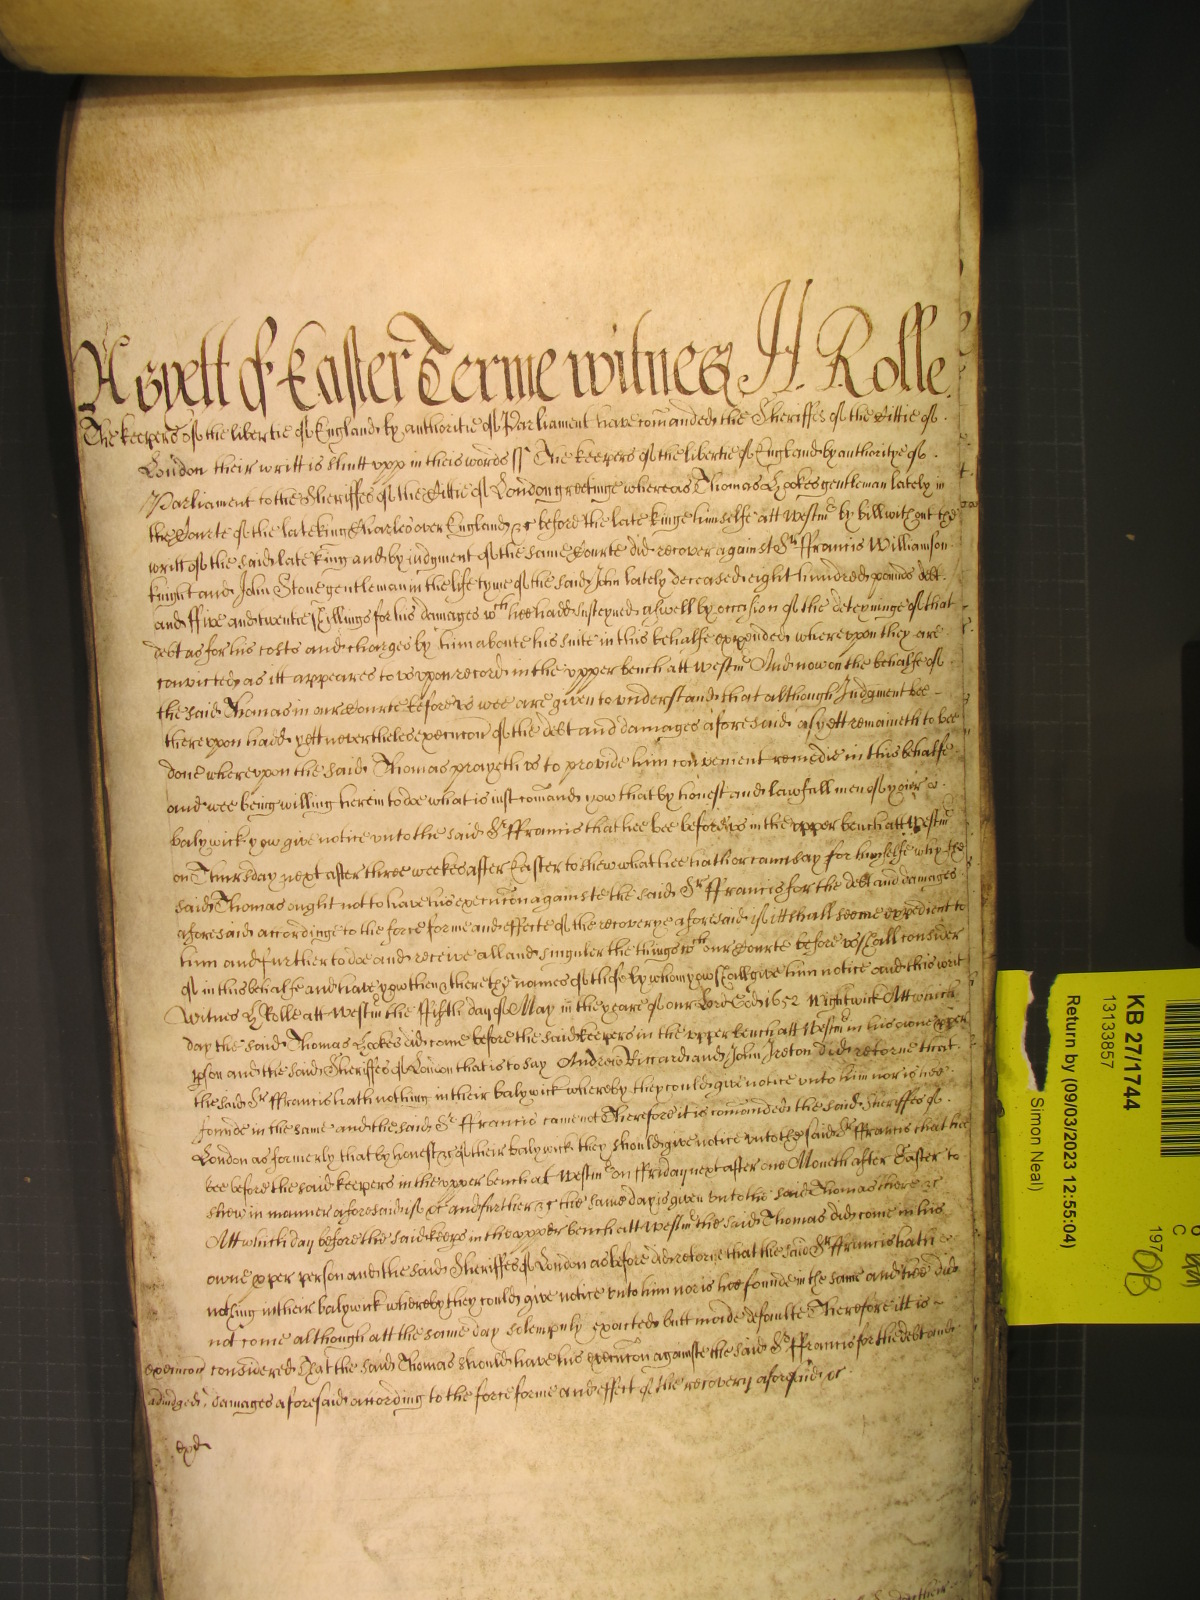 As yett of Easter Terme witnes H. Rolle
The keepers of the libertie of England by authoritie of Parliament have comanded the Sheriffes of the Cittie of
London their writt is shutt vpp in theis words ss The keepers of the libertie of England by authoritye of
Parliament to the Sheriffes of the Cittie of London greetinge whereas Thomas Hookes gentleman lately in
the Courte of the late king Charles over England &c before the late kinge himselfe att Westmr by bill without the
writt of the said late king and by iudgment of the same Courte did recover against Sr ffrancis Williamson
knight and John Stone gentleman in the life tyme of the said John lately deceased eight hundred pounds debt
and ffive and twentie shillings for his damages wch hee hadd susteyned aswell by occasion of the deteyninge of that
debt as for his costs and charges by him aboute his suite in this behalfe expended wherevpon they are
convicted as itt appeares to vs vpon record in the vpper bench att Westmr And now on the behalfe of
the said Thomas in our Courte before vs wee are given to vnderstand that although Judgment bee
therevpon hadd yett nevertheles execucon of the debt and damages aforesaid as yett remaineth to bee
done wherevpon the said Thomas prayeth vs to provide him convenient remedie in this behalfe
and wee being willing herein to doe what is iust comand yow that by honest and lawfull men of your
balywick yow give notice vnto the said Sr ffrancis that hee bee before vs in the vpper bench att Westmr
on Thursday next after three weekes after Easter to shew what hee hath or cann say for himselfe why the
said Thomas ought not to have his execucon againste the said Sr ffrancis for the debt and damages
aforesaid accordinge to the force forme and effecte of the recoverye aforesaid if itt shall seeme expedient to
him and further to doe and receive all and singuler the things wch our Courte before vs shall consider
of in this behalfe and have yow then there the names of those by whom yow shall give him notice and this writt
Witnes H Rolle att Westmr the ffifth day of May in the yeare of our Lord God 1652 Wightwick Att which
day the said Thomas Hookes did come before the said keepers in the vpper bench att Westmr in his owne pper
pson and the said Sheriffes of London that is to say Andrew Riccard and John Ireton did retorne that
the said Sr ffrancis hath nothing in their balywick whereby they could give notice vnto him nor is hee
founde in the same and the said Sr ffrancis came not Therefore it is comanded the said Sheriffes of
London as formerly that by honest &c of their balywick they should give notice vnto the said Sr ffrancis that hee
bee before the said keepers in the vpper bench att Westmr on ffriday next after one Moneth after Easter to
shew in manner aforesaid if &c and further &c the same day is given vnto the said Thomas there &c
Att which day before the said keeps in the vpper bench att Westmr the said Thomas did come in his
owne pper person and the said Sheriffes of London as before did retorne that the said Sr ffrancis hath
nothing in their balywick whereby they could give notice vnto him nor is hee founde in the same and hee did
not come although att the same day solempnly exacted butt made defaulte Therefore itt is
execucon considered that the said Thomas should have his execucon againste the said Sr ffrancis for the debt and
adiudged damages aforesaid according to the force forme and effect of the recovery aforesaid &c
KB 27/1744
13133857
Return by (09/03/2023 12:55:04)
Simon Neal)